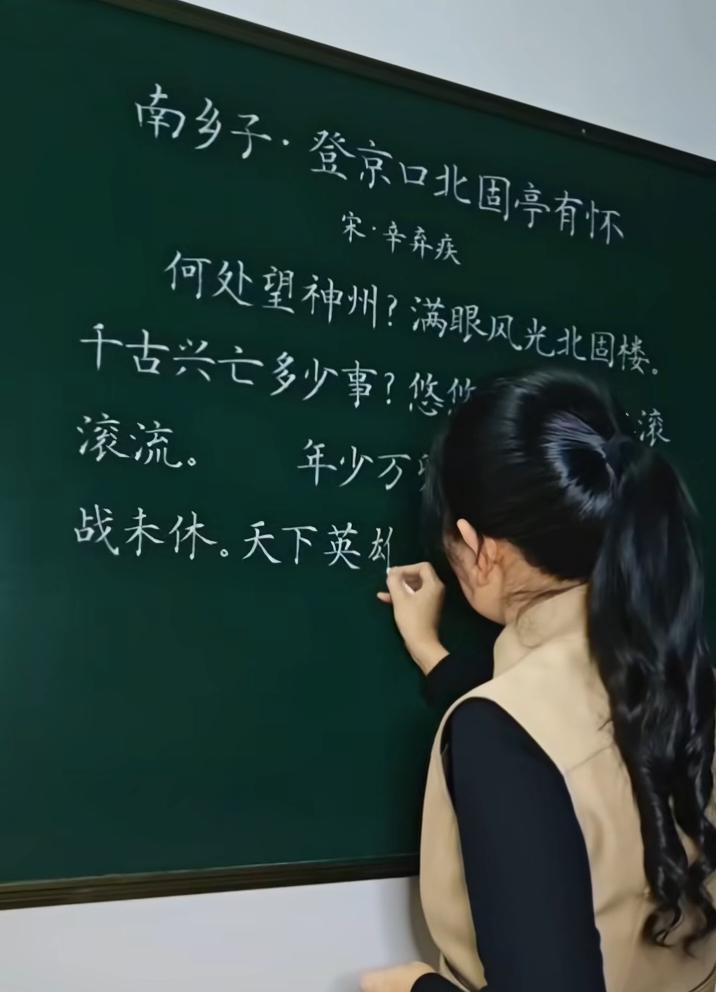 南乡子·登京口北固亭有怀
宋·辛弃疾
何处望神州？满眼风光北固楼。
千古兴亡多少事？悠悠滚
滚流。 年少万
战未休。天下英雄